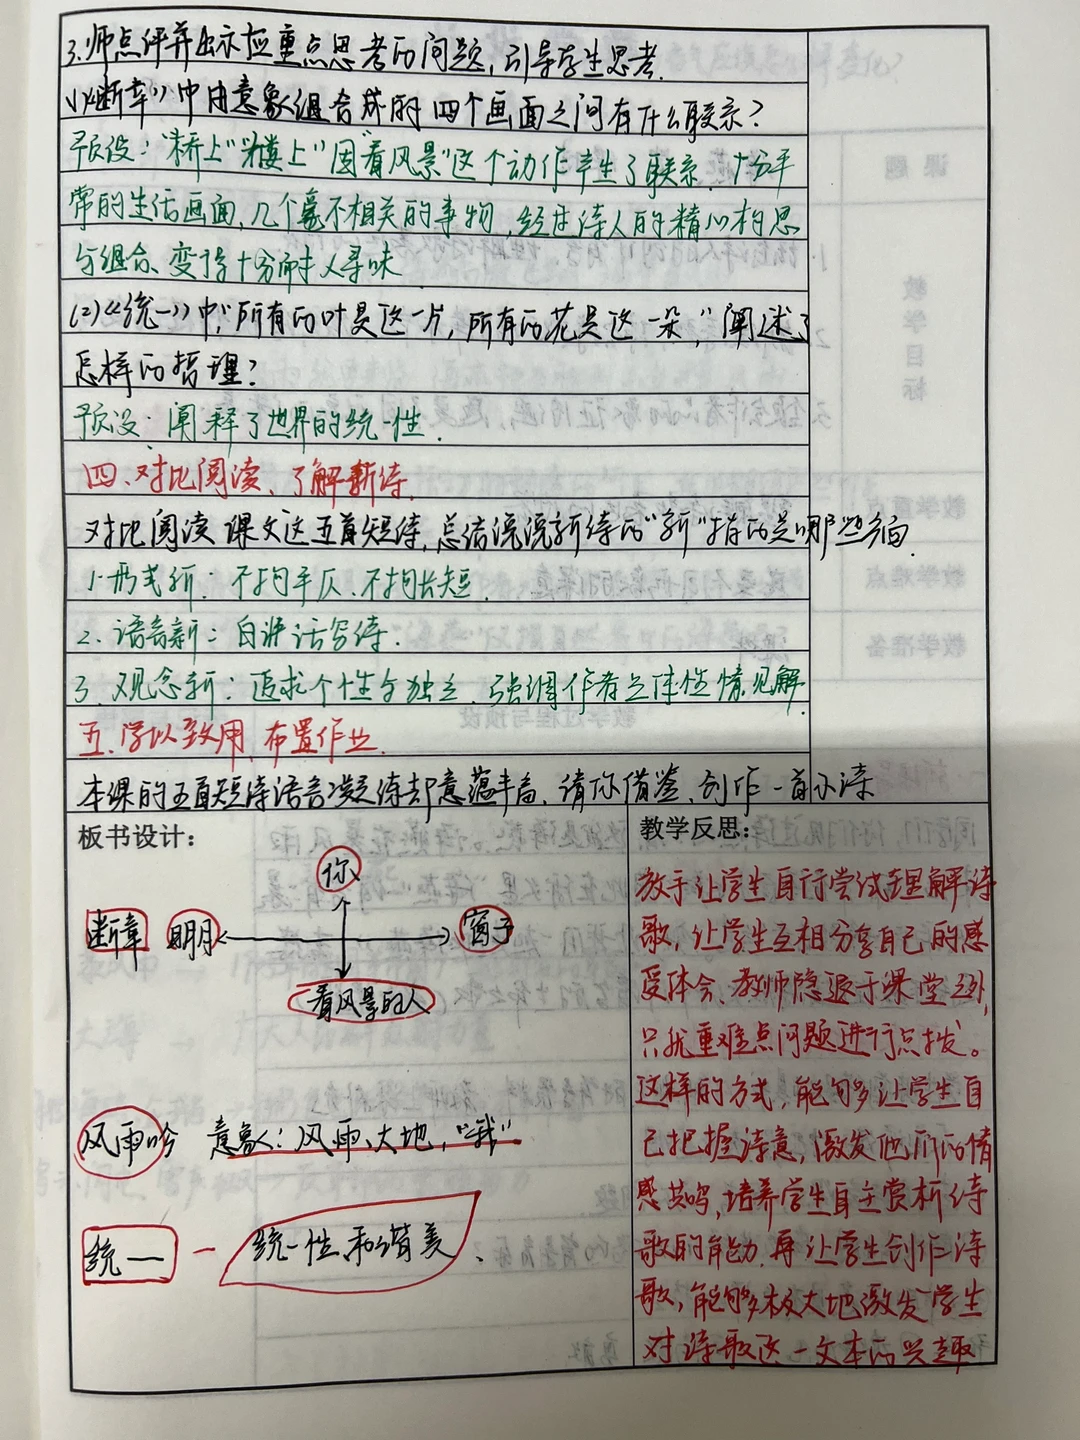 3.师点评并出示应重点思考的问题,引导学生思考.
(1)《断章》中由意象组合成的四个画面之间有什么联系?
预设:"桥上""楼上"因"看风景"这个动作产生了联系.十分平
常的生活画面,几个毫不相关的事物,经过诗人的精心构思
与组合、变得十分耐人寻味
(2)《统一》中,"所有的叶是这一片,所有的花是这一朵,"阐述了
怎样的哲理?
预设:阐释了世界的统一性.
四、对比阅读、了解新诗.
对比阅读课文这五首短诗,总结说说新诗的"新"指的是哪些方面.
1.形式新:不拘平仄、不拘长短.
2.语言新:白话话写诗.
3.观念新:追求个性与独立、强调作者主体性情见解.
五.学以致用、布置作业.
本课的五首短诗语言凝练却意蕴丰富、请你借鉴、创作一首小诗
板书设计:
你
断章 明月 窗子
看风景的人
风雨吟 意象:风雨、大地,"我"
统一 — 统一性、和谐美、
教学反思:
放手让学生自行尝试理解诗
歌,让学生互相分享自己的感
受体会、教师隐退于课堂之外,
只就重难点问题进行点拨。
这样的方式,能够多让学生自
己把握诗意,激发他们的情
感共鸣,培养学生自主赏析诗
歌的能力.再让学生创作诗
歌,能够极大地激发学生
对诗歌这一文本的兴趣
课题
教学目标
教学重点
教学难点
教学准备
教学过程与预设